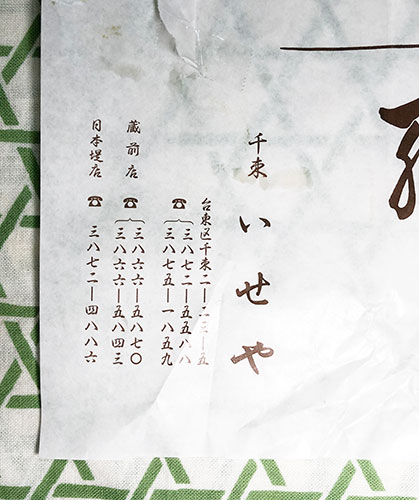 千束 いせや
台東区千束二―二三―五
☎ 三八七二―五五八八
三八七五―一八五九
蔵前店 ☎ 三八六六―五八七〇
三八六六―五八四三
日本堤店 ☎ 三八七二―四八八六